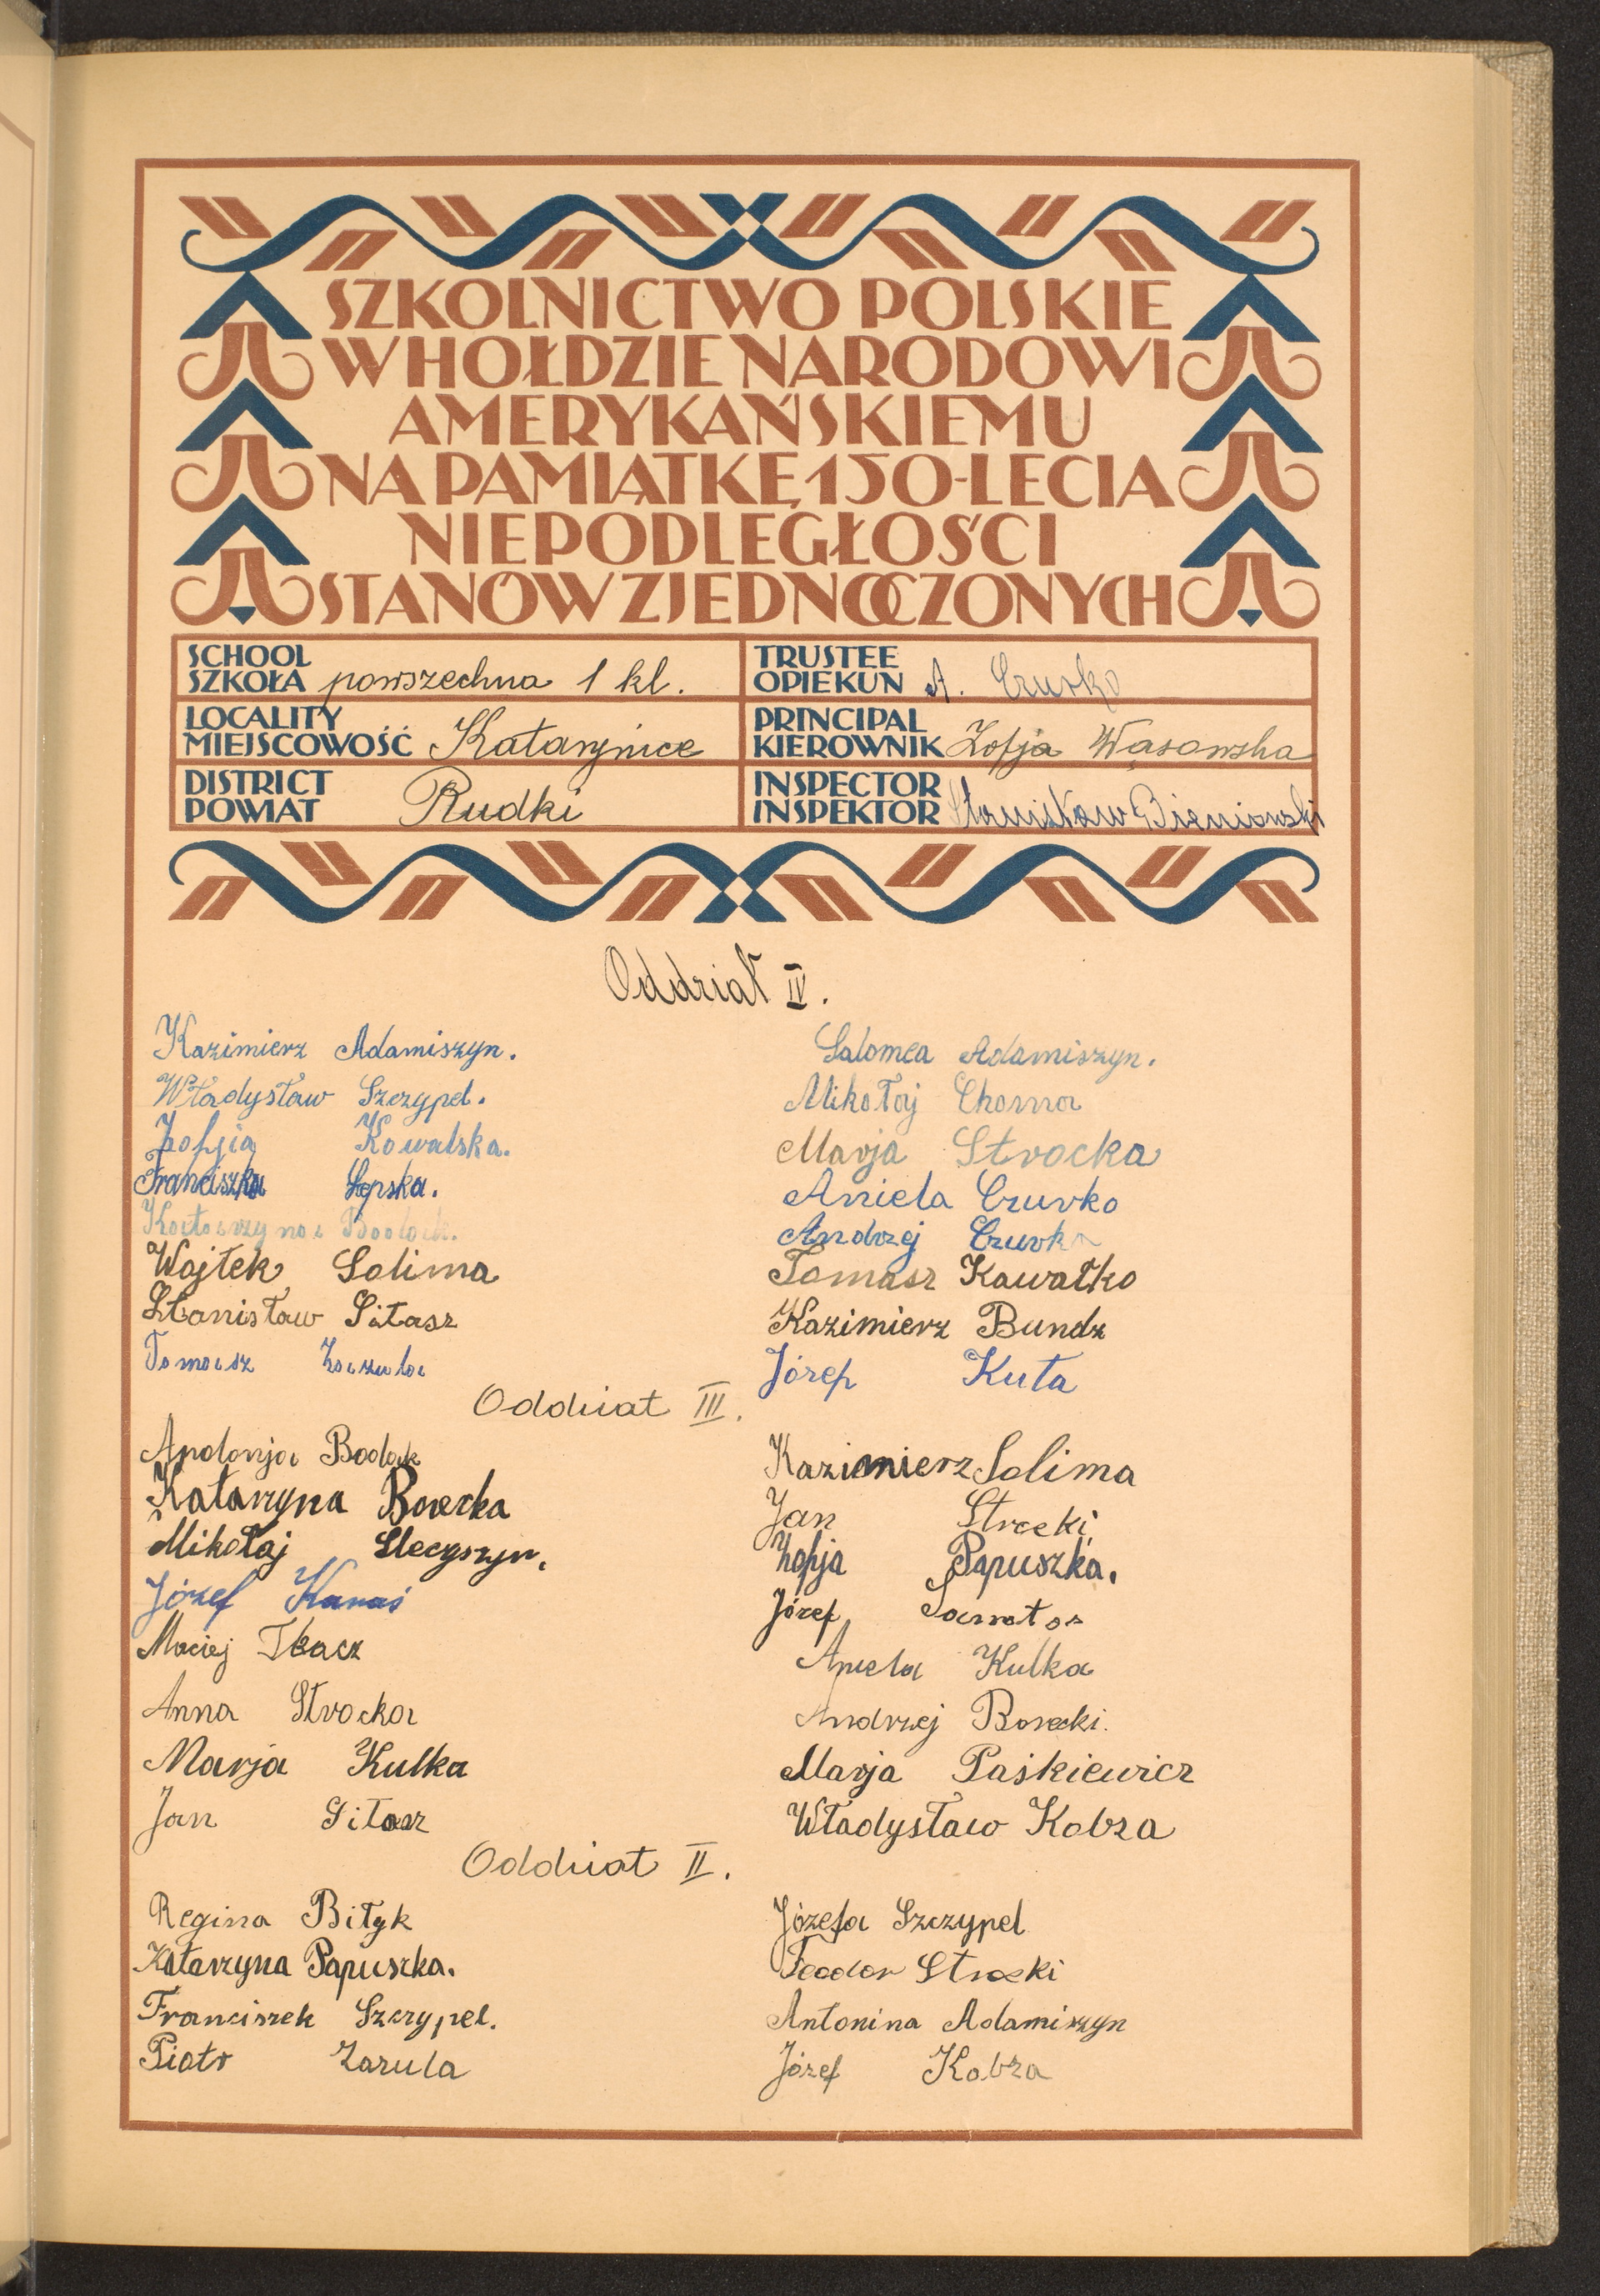 SZKOLNICTWO POLSKIE
W HOŁDZIE NARODOWI
AMERYKAŃSKIEMU
NA PAMIĄTKĘ 150-LECIA
NIEPODLEGŁOŚCI
STANÓW ZJEDNOCZONYCH
SCHOOL
SZKOŁA powszechna 1 kl.
TRUSTEE
OPIEKUN A. Czurko
LOCALITY
MIEJSCOWOŚĆ Katarynice
PRINCIPAL
KIEROWNIK Zofja Wąsowska
DISTRICT
POWIAT Rudki
INSPECTOR
INSPEKTOR Stanisław
Oddział IV.
Kazimierz Adamiszyn.
Władysław Szczypel.
Zofjia Kowalska.
Franciszka Łepska.
Katarzyna
Wojtek Solima
Stanisław Sitasz
Tomasz
Salomea Adamiszyn.
Mikołaj Choma
Marja Strocka
Aniela Czurko
Andrzej Czurko
Tomasz Kawałko
Kazimierz Bundz
Józef Kuta
Oddział III.
Apolonja
Katarzyna Borecka
Mikołaj
Józef Kanas
Maciej Tkacz
Anna Strocka
Marja Kulka
Jan Sitasz
Kazimierz Solima
Jan Strocki
Zofja Papuszka.
Józef
Aniela Kulka
Andrzej Borecki.
Marja Paśkiewicz
Władysław Kobza
Oddział II.
Regina Biłyk
Katarzyna Papuszka.
Franciszek Szczypel.
Piotr Zazula
Józefa Szczypel
Teodor Strocki
Antonina Adamiszyn
Józef Kobza